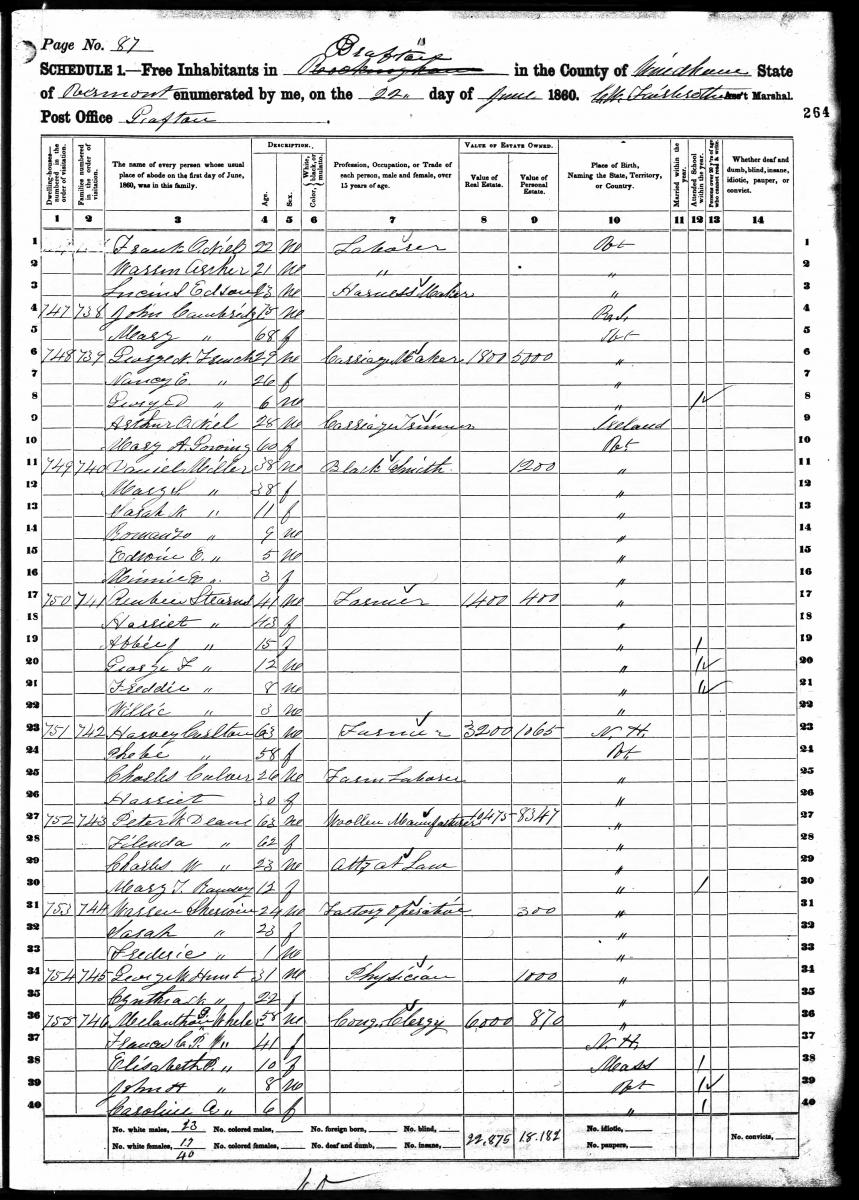 Page No. 87
Grafton
SCHEDULE 1.—Free Inhabitants in Rockingham in the County of Windham State
of Vermont enumerated by me, on the 22 day of June 1860. Ass't Marshal.
264
Post Office Grafton
Dwelling-houses—numbered in the order of visitation.
Families numbered in the order of visitation.
The name of every person whose usual place of abode on the first day of June, 1860, was in this family.
DESCRIPTION.
Age.
Sex.
Color, White, black, or mulatto.
Profession, Occupation, or Trade of each person, male and female, over 15 years of age.
VALUE OF ESTATE OWNED.
Value of Real Estate.
Value of Personal Estate.
Place of Birth, Naming the State, Territory, or Country.
Married within the year.
Attended School within the year.
Persons over 20 y'rs of age who cannot read & write.
Whether deaf and dumb, blind, insane, idiotic, pauper, or convict.
1 2 3 4 5 6 7 8 9 10 11 12 13 14
1 Frank 22 m Laborer Vt 1
2 Warren 21 m " " 2
3 Edson 23 m Harness Maker " 3
4 747 738 John Cambridg 75 m R.I. 4
5 Mary " 68 f Vt 5
6 748 739 George N. French 29 m Carriage Maker 1800 5000 " 6
7 Nancy E. " 26 f " 7
8 George D " 6 m " 1 8
9 Arthur 28 m Carriage Trimmer Ireland 9
10 Mary A. 60 f Vt 10
11 749 740 Daniel Miller 38 m Black Smith 1200 " 11
12 Mary S. " 38 f " 12
13 Sarah " 11 f " 13
14 Romanzo " 9 m " 14
15 Edwin E. " 5 m " 15
16 Minnie " 3 f " 16
17 750 741 Reuben Stearns 41 m Farmer 1400 400 " 17
18 Harriet " 43 f " 18
19 Abbie J " 15 f " 1 19
20 George F " 12 m " 1 20
21 Freddie " 8 m " 1 21
22 Willie " 3 m " 22
23 751 742 Harvey Carlton 63 m Farmer 3200 1065 N. H. 23
24 Phebe " 58 f Vt 24
25 Charles Culver 26 m Farm Laborer " 25
26 Harriet 30 f " 26
27 752 743 Peter W Deane 63 m Woollen Manufacturer 10475 8347 " 27
28 Filenda " 62 f " 28
29 Charles W " 23 m Atty at Law " 29
30 Mary T. Ramsey 12 f " 1 30
31 753 744 Warren Sherwin 24 m Factory Operative 300 " 31
32 Sarah " 23 f " 32
33 Frederic " 1 m " 33
34 754 745 George W Hunt 31 m Physician 1000 " 34
35 Cynthia " 22 f " 35
36 755 746 Melanthon G Whele 58 m Cong. Clergy 6000 870 " 36
37 Frances C. P. W " 41 f N. H. 37
38 Elisabeth P. " 10 f Mass 1 38
39 John H " 8 m Vt 1 39
40 Caroline A " 6 f " 1 40
No. white males, 23 No. colored males, No. foreign born, No. blind, 22,875 18.182 No. idiotic,
No. white females, 17 No. colored females, No. deaf and dumb, No. insane, No. paupers, No. convicts,
40